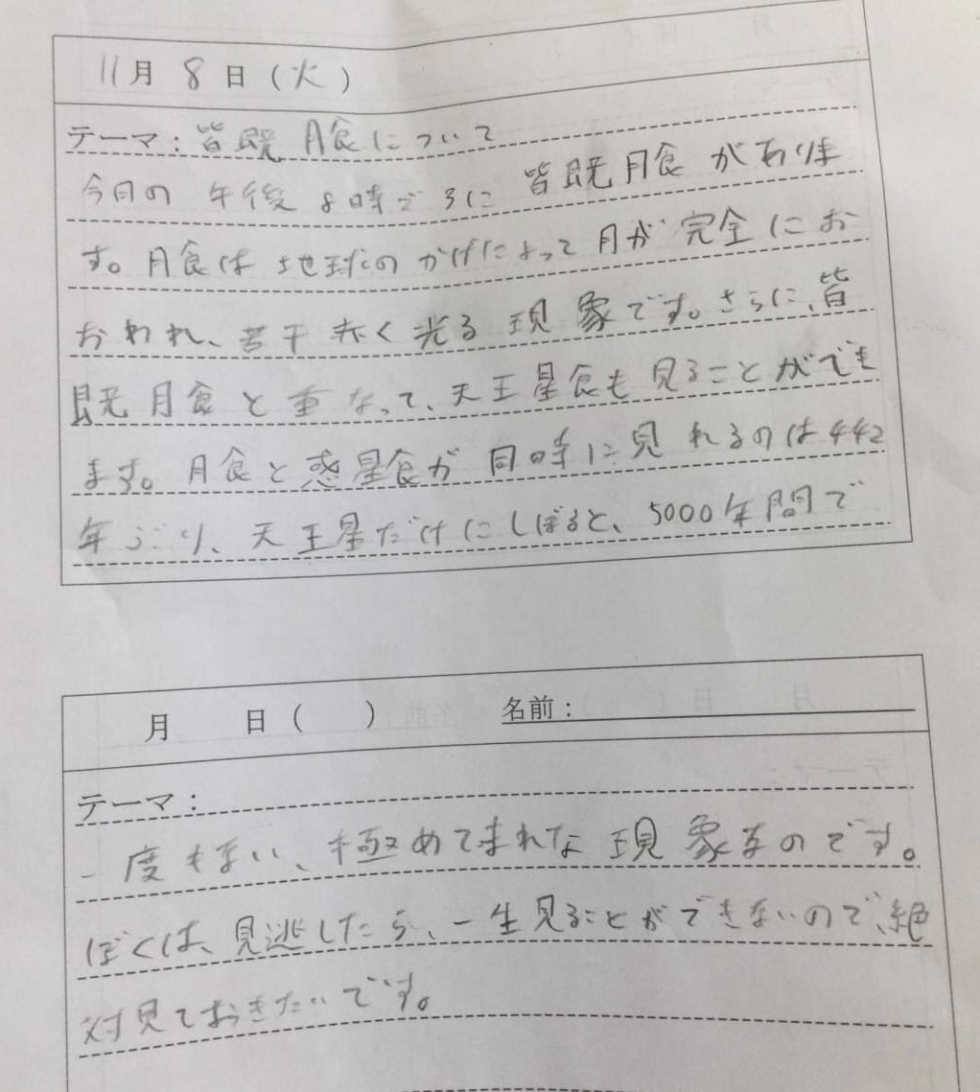 11月 8日(火)
テーマ:皆既月食について
今日の午後8時ごろに皆既月食がありま
す。月食は地球のかげによって月が完全にお
おわれ、若干赤く光る現象です。さらに、皆
既月食と重なって、天王星食も見ることができ
ます。月食と惑星食が同時に見れるのは442
年ぶり、天王星だけにしぼると、5000年間で
月 日( ) 名前:
テーマ:
一度もない、極めてまれな現象なのです。
ぼくは、見逃したら、一生見ることができないので、絶
対見ておきたいです。